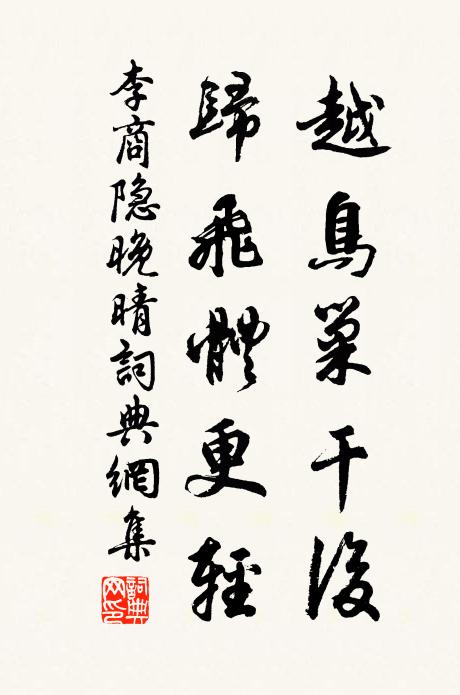 越鳥巢干後
歸飛體更輕
李商隐晚晴詞典網集
詞典网印